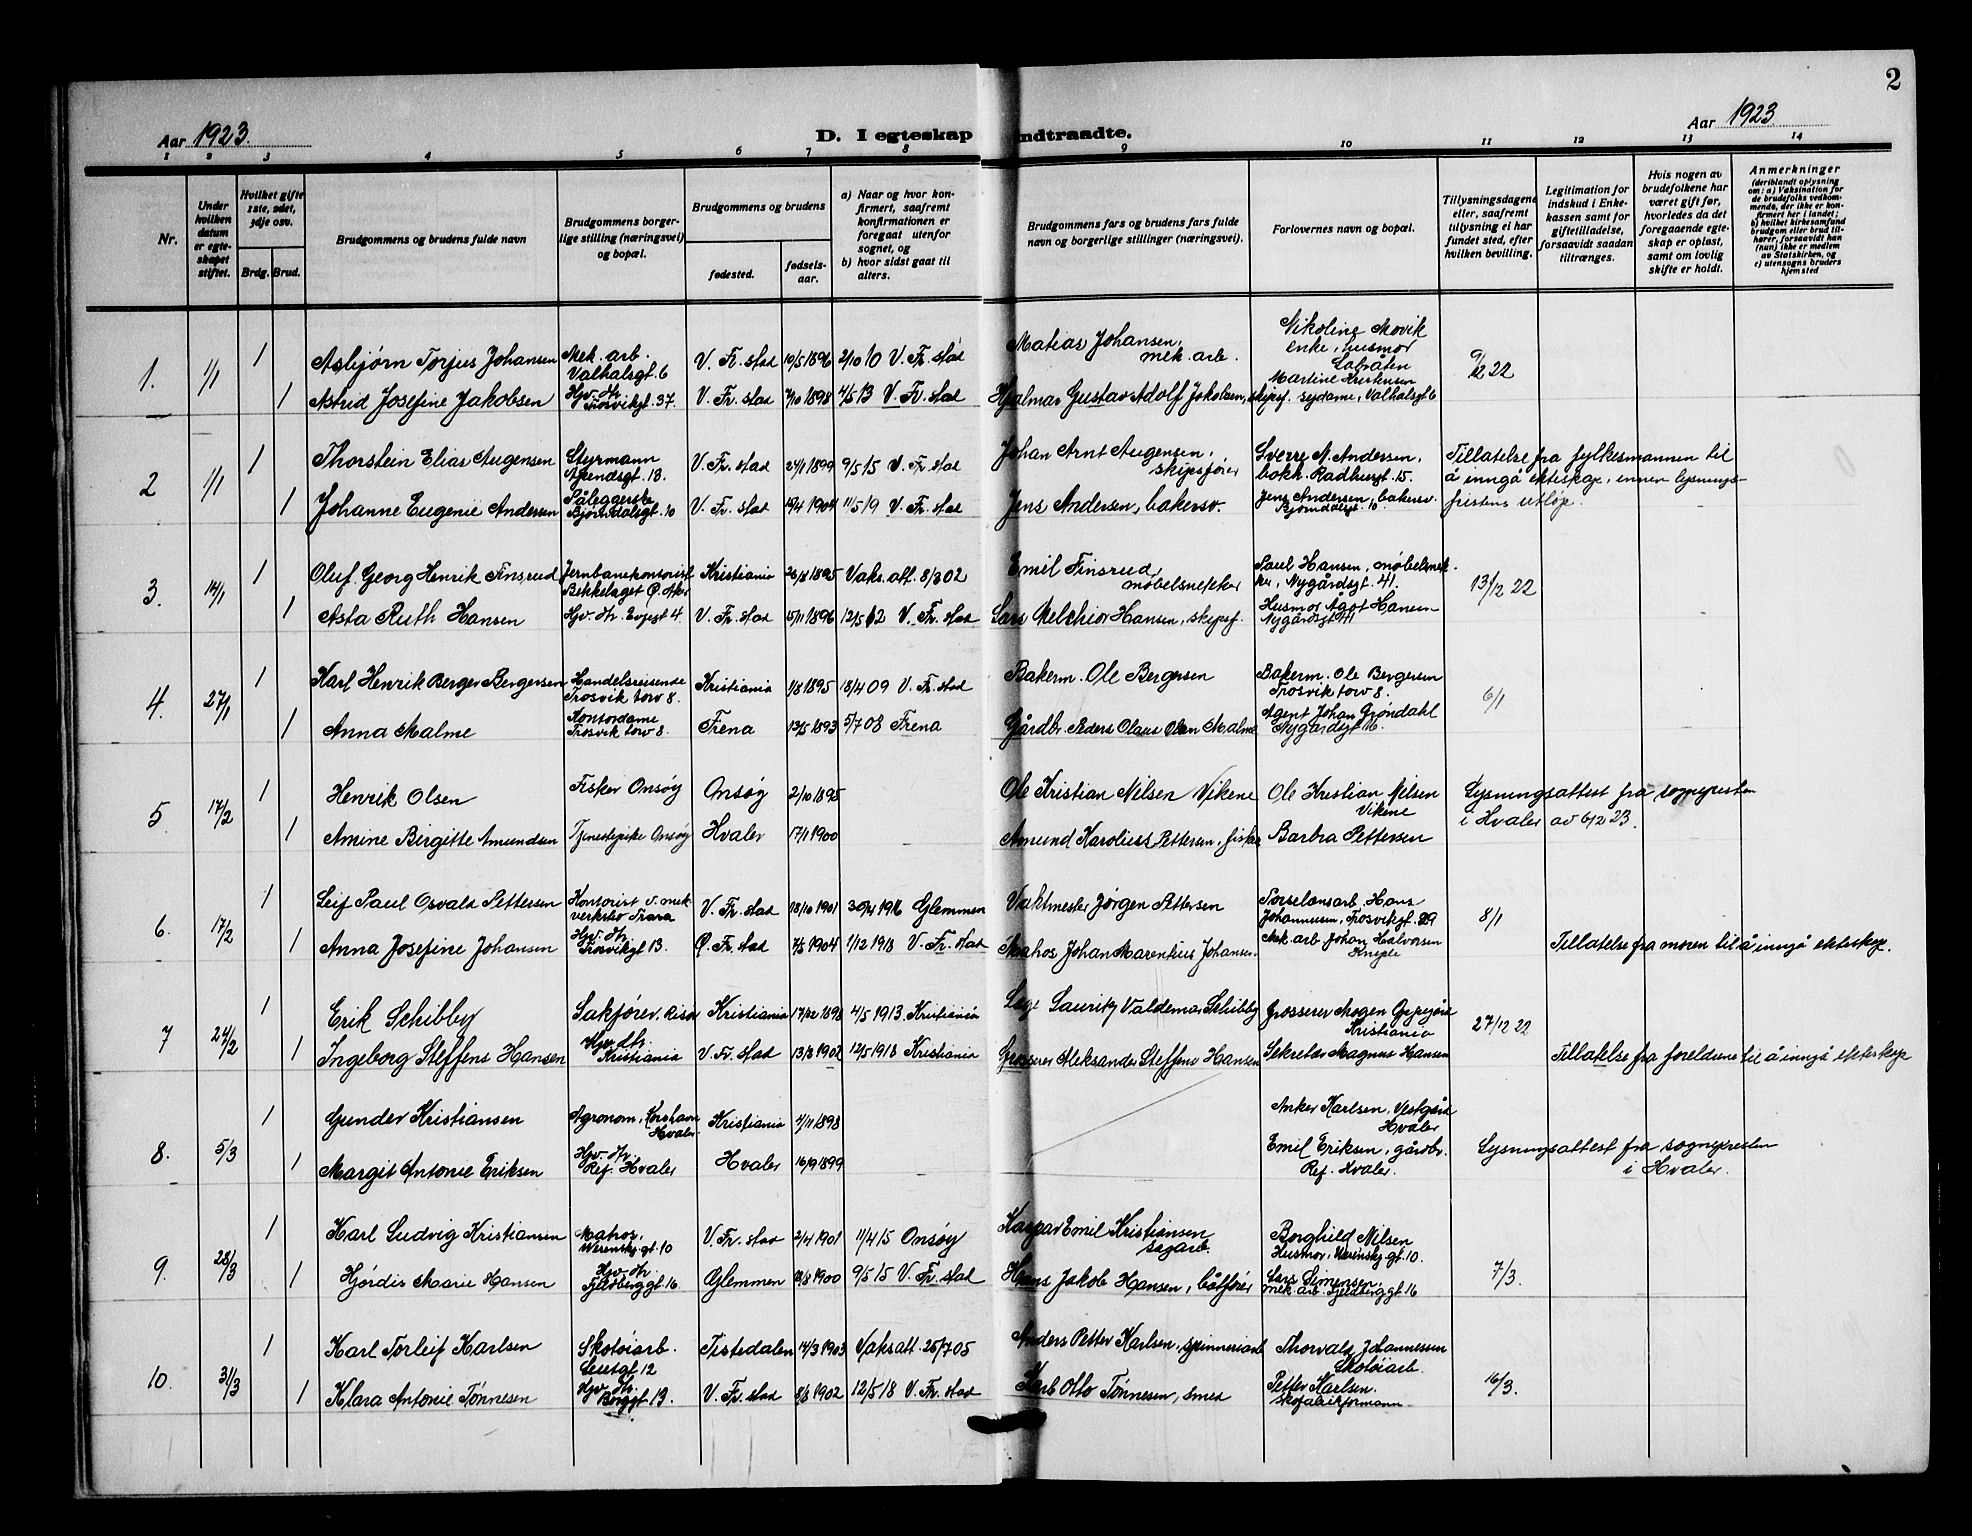 2
Aar 1923.
D. I egteskap indtraadte.
Aar 1923
1 2 3 4 5 6 7 8 9 10 11 12 13 14
Nr.
Under hvilken datum er egteskapet stiftet.
Hvilket gifte 1ste, 2det, 3dje osv.
Brdg. Brud.
Brudgommens og brudens fulde navn
Brudgommens borgerlige stilling (næringsvei) og bopæl.
Brudgommens og brudens
fødested.
fødselsaar.
a) Naar og hvor konfirmert, saafremt konfirmationen er foregaat utenfor sognet, og
b) hvor sidst gaat til alters.
Brudgommens fars og brudens fars fulde navn og borgerlige stillinger (næringsvei).
Forlovernes navn og bopæl.
Tillysningsdagene eller, saafremt tillysning ei har fundet sted, efter hvilken bevilling.
Legitimation for indskud i Enkekassen samt for giftetilladelse, forsaavidt saadan tiltrænges.
Hvis nogen av brudefolkene har været gift før, hvorledes da det foregaaende egteskap er opløst, samt om lovlig skifte er holdt.
Anmerkninger
(deriblandt oplysning om: a) Vaksination for de brudefolks vedkommende, der ikke er konfirmert her i landet; b) hvilket kirkesamfund brudgom eller brud tilhører, forsaavidt han (hun) ikke er medlem av Statskirken, og c) utensogns bruders hjemsted
1. 1/1 1 Asbjørn Torjus Johansen Mek. arb. Valhalsgt. 6 V. Fr. stad 10/5 1896 2/10 10 V. Fr. stad Matias Johansen, mek. arb. Nikoline Movik enke, husmor 9/12 22
1 Astrid Josefine Jakobsen Hjv. dtr. Trosvikgt. 37. V. Fr. stad 1898 4/5 13 V. Fr. stad Hjalmar Gustav Adolf Jakobsen, skipsf. Martine Kristensen sydame, Valhalsgt 6
2 1/1 1 Thorstein Elias Augensen Styrmann Apendsgt. 13. V. Fr. stad 24/1 1899 9/5 15 V. Fr. stad Johan Arnt Augensen, skipsfører Sverre N. Andersen, bokh. Radhusgt. 15. Tillatelse fra fylkesmannen til å inngå ekteskap, innen lysningsfristens utløp.
1 Johanne Eugenie Andersen Påleggerske V. Fr. stad 1904 11/5 19 V. Fr. stad Jens Andersen, bakersv. Jens Andersen, bakersv.
3. 14/1 1 Oluf Georg Henrik Finsrud Jernbanekontorist Bekkelaget Ø. Aker Kristiania 26/8 1895 Vaks. att. 8/3 02 Emil Finsrud, møbelsnekker Paul Hansen, møbelsnekker, Nygårdsgt. 41. 13/12 22
1 Asta Ruth Hansen Hjv. dtr. Evjegt 4. V. Fr. stad 15/11 1896 12/5 12 V. Fr. stad Lars Melchior Hansen, skipsf. Husmor Ågot Hansen Nygårdsgt 41
4. 27/1 1 Karl Henrik Berger Bergersen Handelsreisende Trosvik torv 8. Kristiania 1/8 1895 18/4 09 V. Fr. stad Bakerm. Ole Bergersen Bakerm. Ole Bergersen Trosvik torv 8. 6/1
1 Anna Malme Kontordame Trosvik torv 8. Frena 13/5 1893 5/7 08 Frena Gårdbr. Peders Olaus Olsen Malme Agent Johan Grøndahl Nygårdsgt 16.
5. 17/2 1 Henrik Olsen Fisker Onsøy Onsøy 2/10 1895 Ole Kristian Nilsen Vikene Ole Kristian Nilsen Vikene Lysningsattest fra sognepresten i Hvaler av 6/2 23.
1 Amine Birgitte Amundsen Tjenestepike Onsøy Hvaler 17/1 1900 Amund Karolius Pettersen, fisker Barbra Pettersen
6. 17/2 1 Leif Paul Osvald Pettersen Kontorist v. mek verksted Trara V. Fr. stad 18/10 1901 30/4 1916 Glemmen Vaktmester Jørgen Pettersen Porselensarb. Hans Johannesen, Trosvikgt. 29 8/1
1 Anna Josefine Johansen Hjv. dtr. Trosvikgt 13. Ø. Fr. stad 7/5 1904 1/12 1918 V. Fr. stad Matros Johan Marentius Johansen Mek. arb Johan Halvorsen Kniple Tillatelse fra moren til å inngå ekteskap.
7 24/2 1 Erik Schibby Sakfører. Risør Kristiania 17/12 1898 4/5 1913. Kristiania Læge Lauritz Valdemar Schibby Grosserer Mogen Kristiania 27/12 22
1 Ingeborg Steffens Hansen Hjv. dtr. Kristiania V. Fr. stad 13/3 1902 12/5 1918 Kristiania Grosserer Aleksander Steffens Hansen Sekretær Magnus Hansen Tillatelse fra foreldrene til å inngå ekteskap
8. 5/3 1 Gunder Kristiansen Agronom, Korshavn Hvaler Kristiania 4/11 1898 Anker Karlsen, Vestgård Hvaler Lysningsattest fra sognepresten i Hvaler.
1 Margit Antonie Eriksen Hjv. dtr. Ref. Hvaler Hvaler 16/9 1899 Emil Eriksen, gårdbr. Ref. Hvaler.
9. 28/3 1 Karl Ludvig Kristiansen Matros, Werenskj. gt. 10 V. Fr. stad 2/4 1901 11/4 15 Onsøy Kaspar Emil Kristiansen sagarb. Borghild Nilsen Husmor, Werenskj. gt. 10. 7/3.
1 Hjørdis Marie Hansen Hjv. dtr. Fjeldberggt 16 Glemmen 1900 9/5 15 V. Fr. stad Hans Jakob Hansen, båtfører Lars Simensen, mek arb. Fjeldberggt 16
10. 31/3 1 Karl Torleif Karlsen Skotøiarb. Leusgt 12 Tistedalen 14/3 1903 Vaksatt. 25/7 05 Anders Petter Karlsen, spinneriarb Thorvald Johannessen Skotøiarb. 16/3.
1 Klara Antonie Tønnesen Hjv. dtr. Borggt 13. V. Fr. stad 1902 12/5 18 V. Fr. stad Karl Otto Tønnesen, smed Petter Karlsen. Skofabrikformann